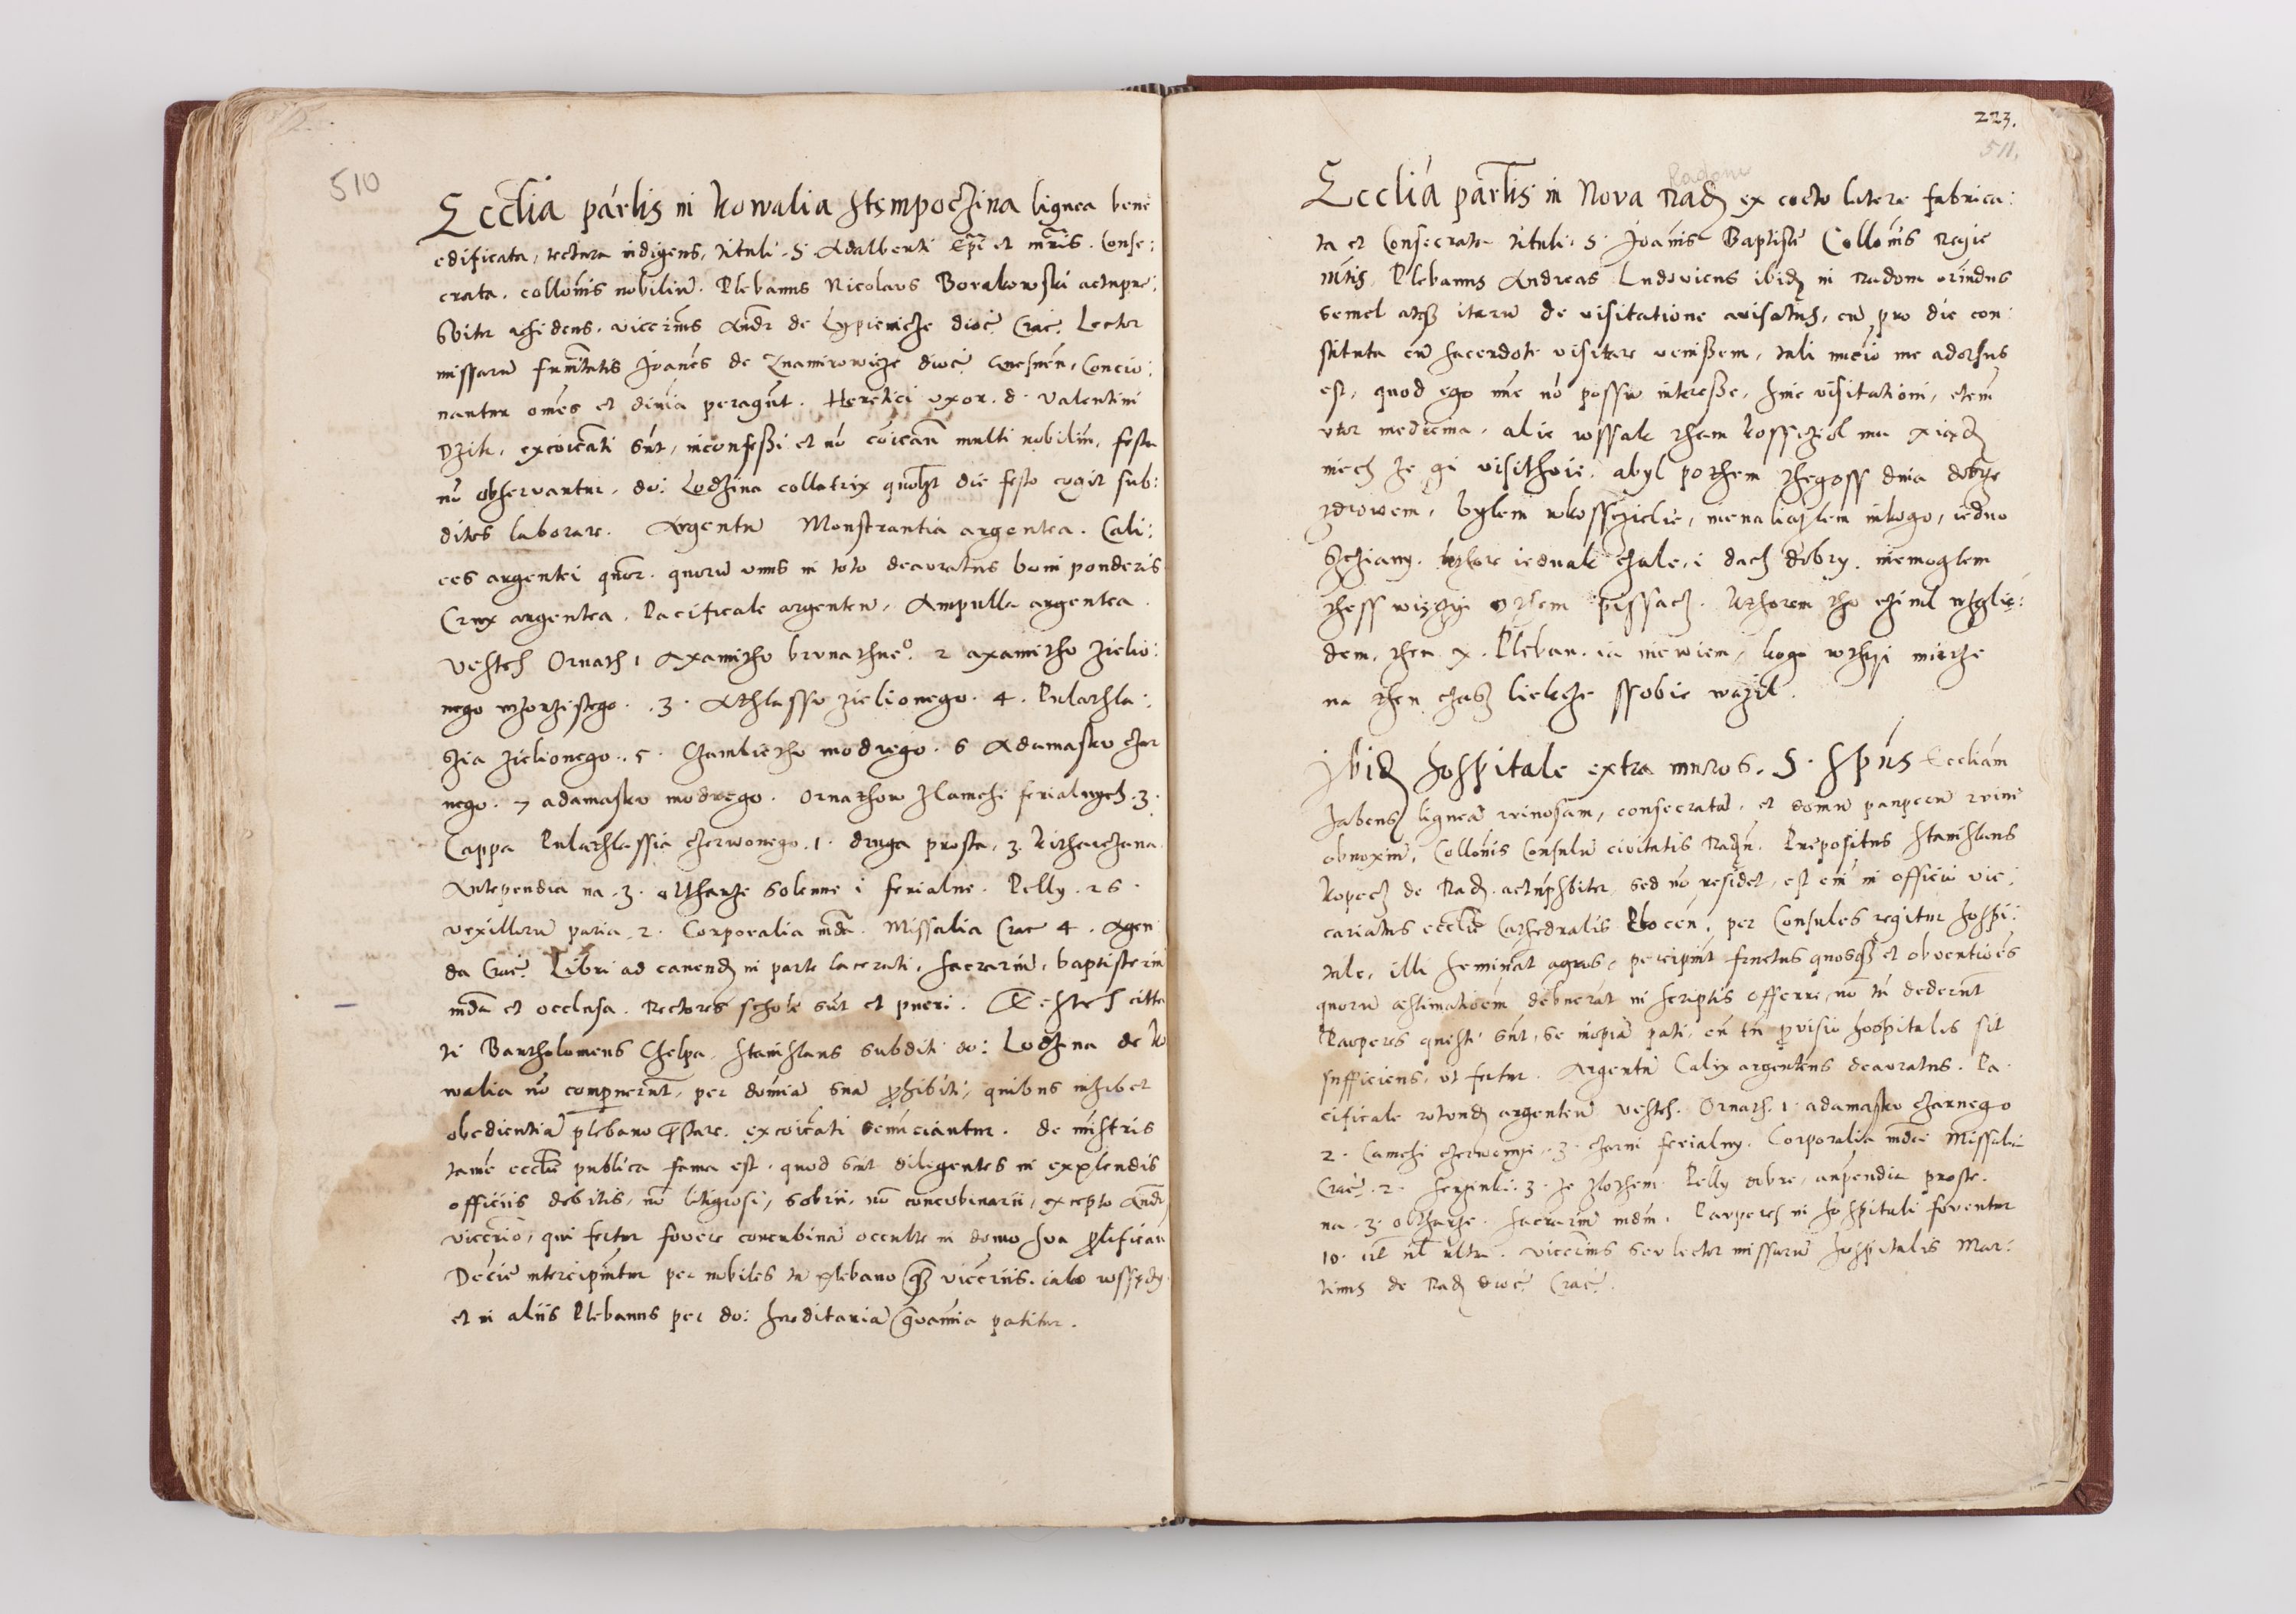 510
Ecclia parlis in Kowalia Stempoczina lignea bene
edificata, tectura indigens, tituli S. Adalberti Epi et mris. Conse:
crata. collonis nobiliu. Plebanus Nicolaus Borakowski actu pre:
sbiter residens. vicerius Andr de Lypienicze dioc Crac. Lector
missaru fundatis Joanes de Znamirowicze dioc Gnesnen, Concio:
nantur omes et divia peragut. Heretici uxor. d. Valentini
Dzik, excoicati sut, inconfessi et no coicant multi nobiliu, festa
no observantur, do: Lodzina collatrix quolzt die festo cogit sub:
ditos laborare. Argentu Monstrantia argentea. Cali:
ces argentei quor. quoru unus in toto deauratus boni ponderis
Crux argentea. Pacificale argenteu, Ampulla argentea.
Vestes Ornath 1 Axamitho brunathneo. 2 axamitho zielio:
nego wzorzistego. 3. Athlassu zielionego. 4. Pulathla:
szia zielionego. 5. Czamlietho modrego. 6 Adamasku czar
nego. 7 adamasku modrego. Ornathow zlamchi ferialnych. 3.
Cappa Pulathlassia czerwonego. 1. druga prosta, 3. Kithaiczana.
Antependia na .3. oltharze solenne i ferialne. Pelly. 26.
vexilloru paria. 2. Corporalia mda. Missalia Crac 4. Agen
da Crac. Libri ad canend in parte lacerati, sacrariu, baptisteriu
mda et occlusa. Rectores schole sut et pueri. Testes citta
ti Bartholomeus Chelpa, Stanislaus subditi do: Lodzina de Ko
walia no comparuerut, per domia sua prohibiti, quibus inhibet
obedientia plebano prestare. excoicati denuciantur. de mistris
tame ecclie publica fama est. quod sint diligentes in explendis
officiis debitis, no litigiosi, sobrii, no concubinarii, excepto Andr
vicerio, qui fertur fovere concubina occulte in domo sua prolifican
Decie intercipiutur per nobiles ta plebano qz viceriis. iako wsszedy
et in aliis Plebanus per do: hereditaria gravamia patitur.
223.
511.
Radom
Ecclia partis in Nova Rad ex cocto latere fabrica:
ta et Consecrata tituli. S. Joanis Baptiste Collonis Regie
mtis. Plebanus Andreas Ludovicus ibid in Radom oriundus
semel atqz iteru de visitatione avisatus, cu pro die con:
stituta cu sacerdote visitare venissem, tali nucio me adorsus
est, quod ego mie no possu interesse, huic visitationi, etem
utor medicina, alie wssak tham kossicziol ma xiedz
niech ze gi visithuie. abyl pothem thegoss dnia dobrze
zdrowem, bylem w kossczielie, nie naliazlem nikogo, iedno
Szciany. kthore iednak czale, i dach dobry. niemoglem
thess wieczyi o them pissach. Kthorem tho czinil wzglie:
dem, then x. Pleban. ia niewiem, kogo wthyi mierze
na then czasz liekcze ssobie wazil.
Ibid hospitale extra muros. S. Spus Eccliam
habens lignea ruinosam, consecrata. et domu pauperu ruine
obnoxia. Collonis Consulu civitatis Radn. Prepositus Stanislaus
Kopecz de Rad. actu psbiter sed no residet, est eni in officiu vic:
cariatus ecclie Cathedralis Plocen. per Consules regitur hospi:
tale, illi seminat agros, percipiut fructus quosqz et obventioes
quoru aestimatioem debuerat in scriptis offerre, no tn dederut
Pauperes questi sut, se inopia pati, cu tn provisio hospitalis sit
sufficiens, ut fertur. Argentu Calix argenteus deauratus. Pa.
cificale rotond argenteu vestes. Ornath. 1. adamasku czarnego
2. Camchi czerwonyi. 3. czarni ferialny. Corporalia mda Missalia
Crac. 2. Serzinki. 3. ze zlothem. Pelly dobre, anpendia proste.
na .3. oltharze. Sacrariu mdm. Pauperes in hospitali foventur
10. vel nl ultra. vicerius seu lector missaru hospitalis Mar:
tinus de Rad dioc Crac.